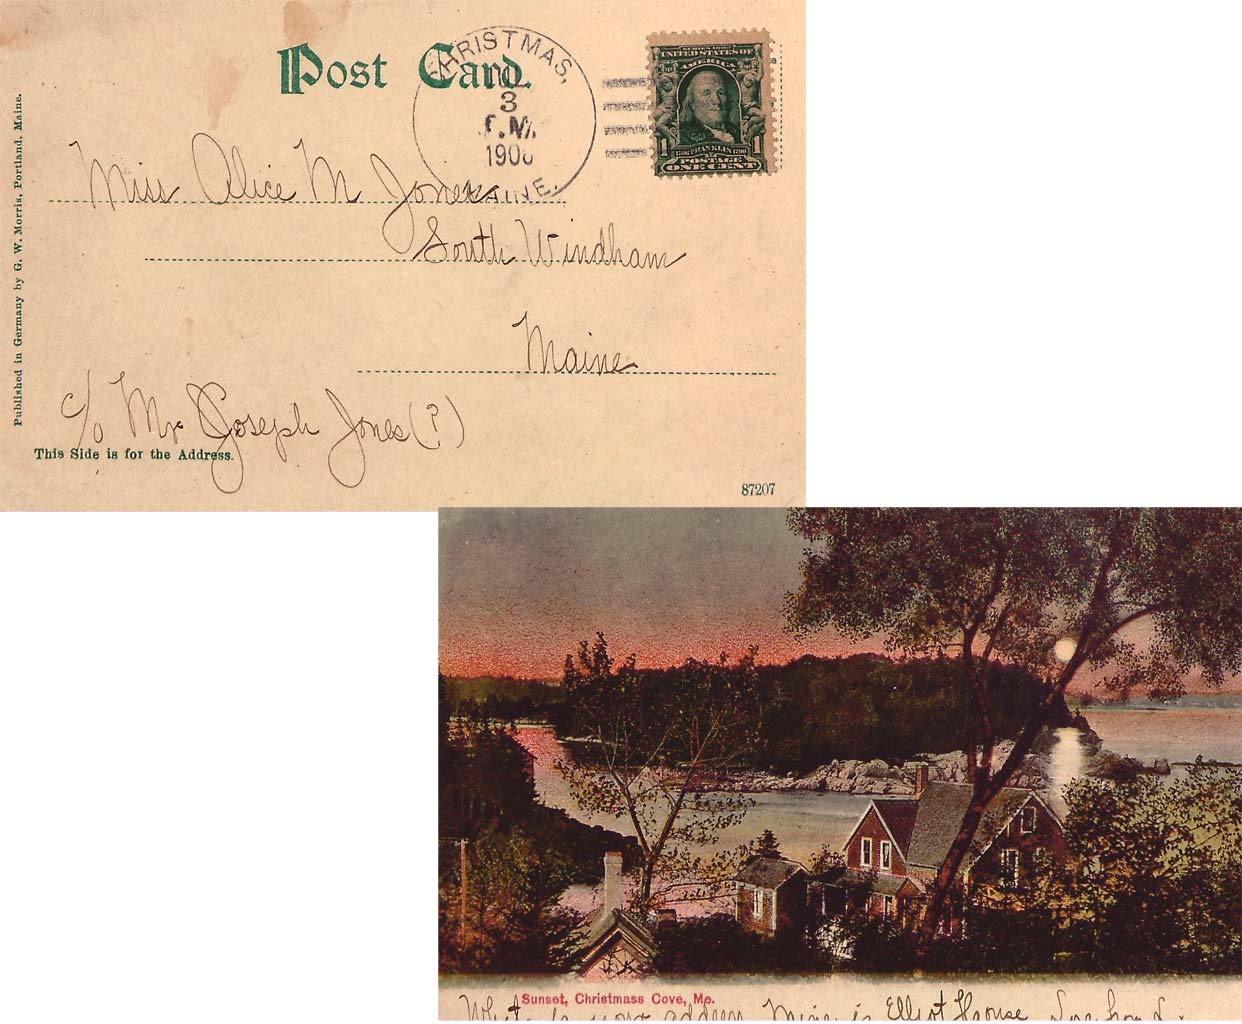 Post Card.
CHRISTMAS,
3
P.M.
190
MAINE.
SERIES 1902
UNITED STATES OF
AMERICA
1 1706 FRANKLIN 1790
POSTAGE
ONE CENT
Miss Alice M Jones
South Windham
Maine
c/o Mr Joseph Jones (?)
This Side is for the Address.
Published in Germany by G. W. Morris, Portland, Maine.
87207
Sunset, Christmass Cove, Me.
What is your address Mine is Elliot House